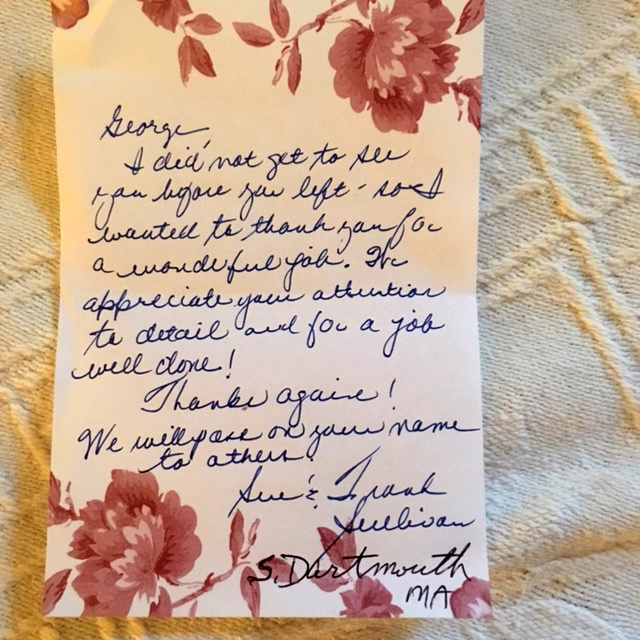 George,
I did not get to see
you before you left - so I
wanted to thank you for
a wonderful job. We
appreciate your attention
to detail and for a job
well done!
Thanks again!
We will pass on your name
to others!
Sue & Frank
Sullivan
S. Dartmouth
MA